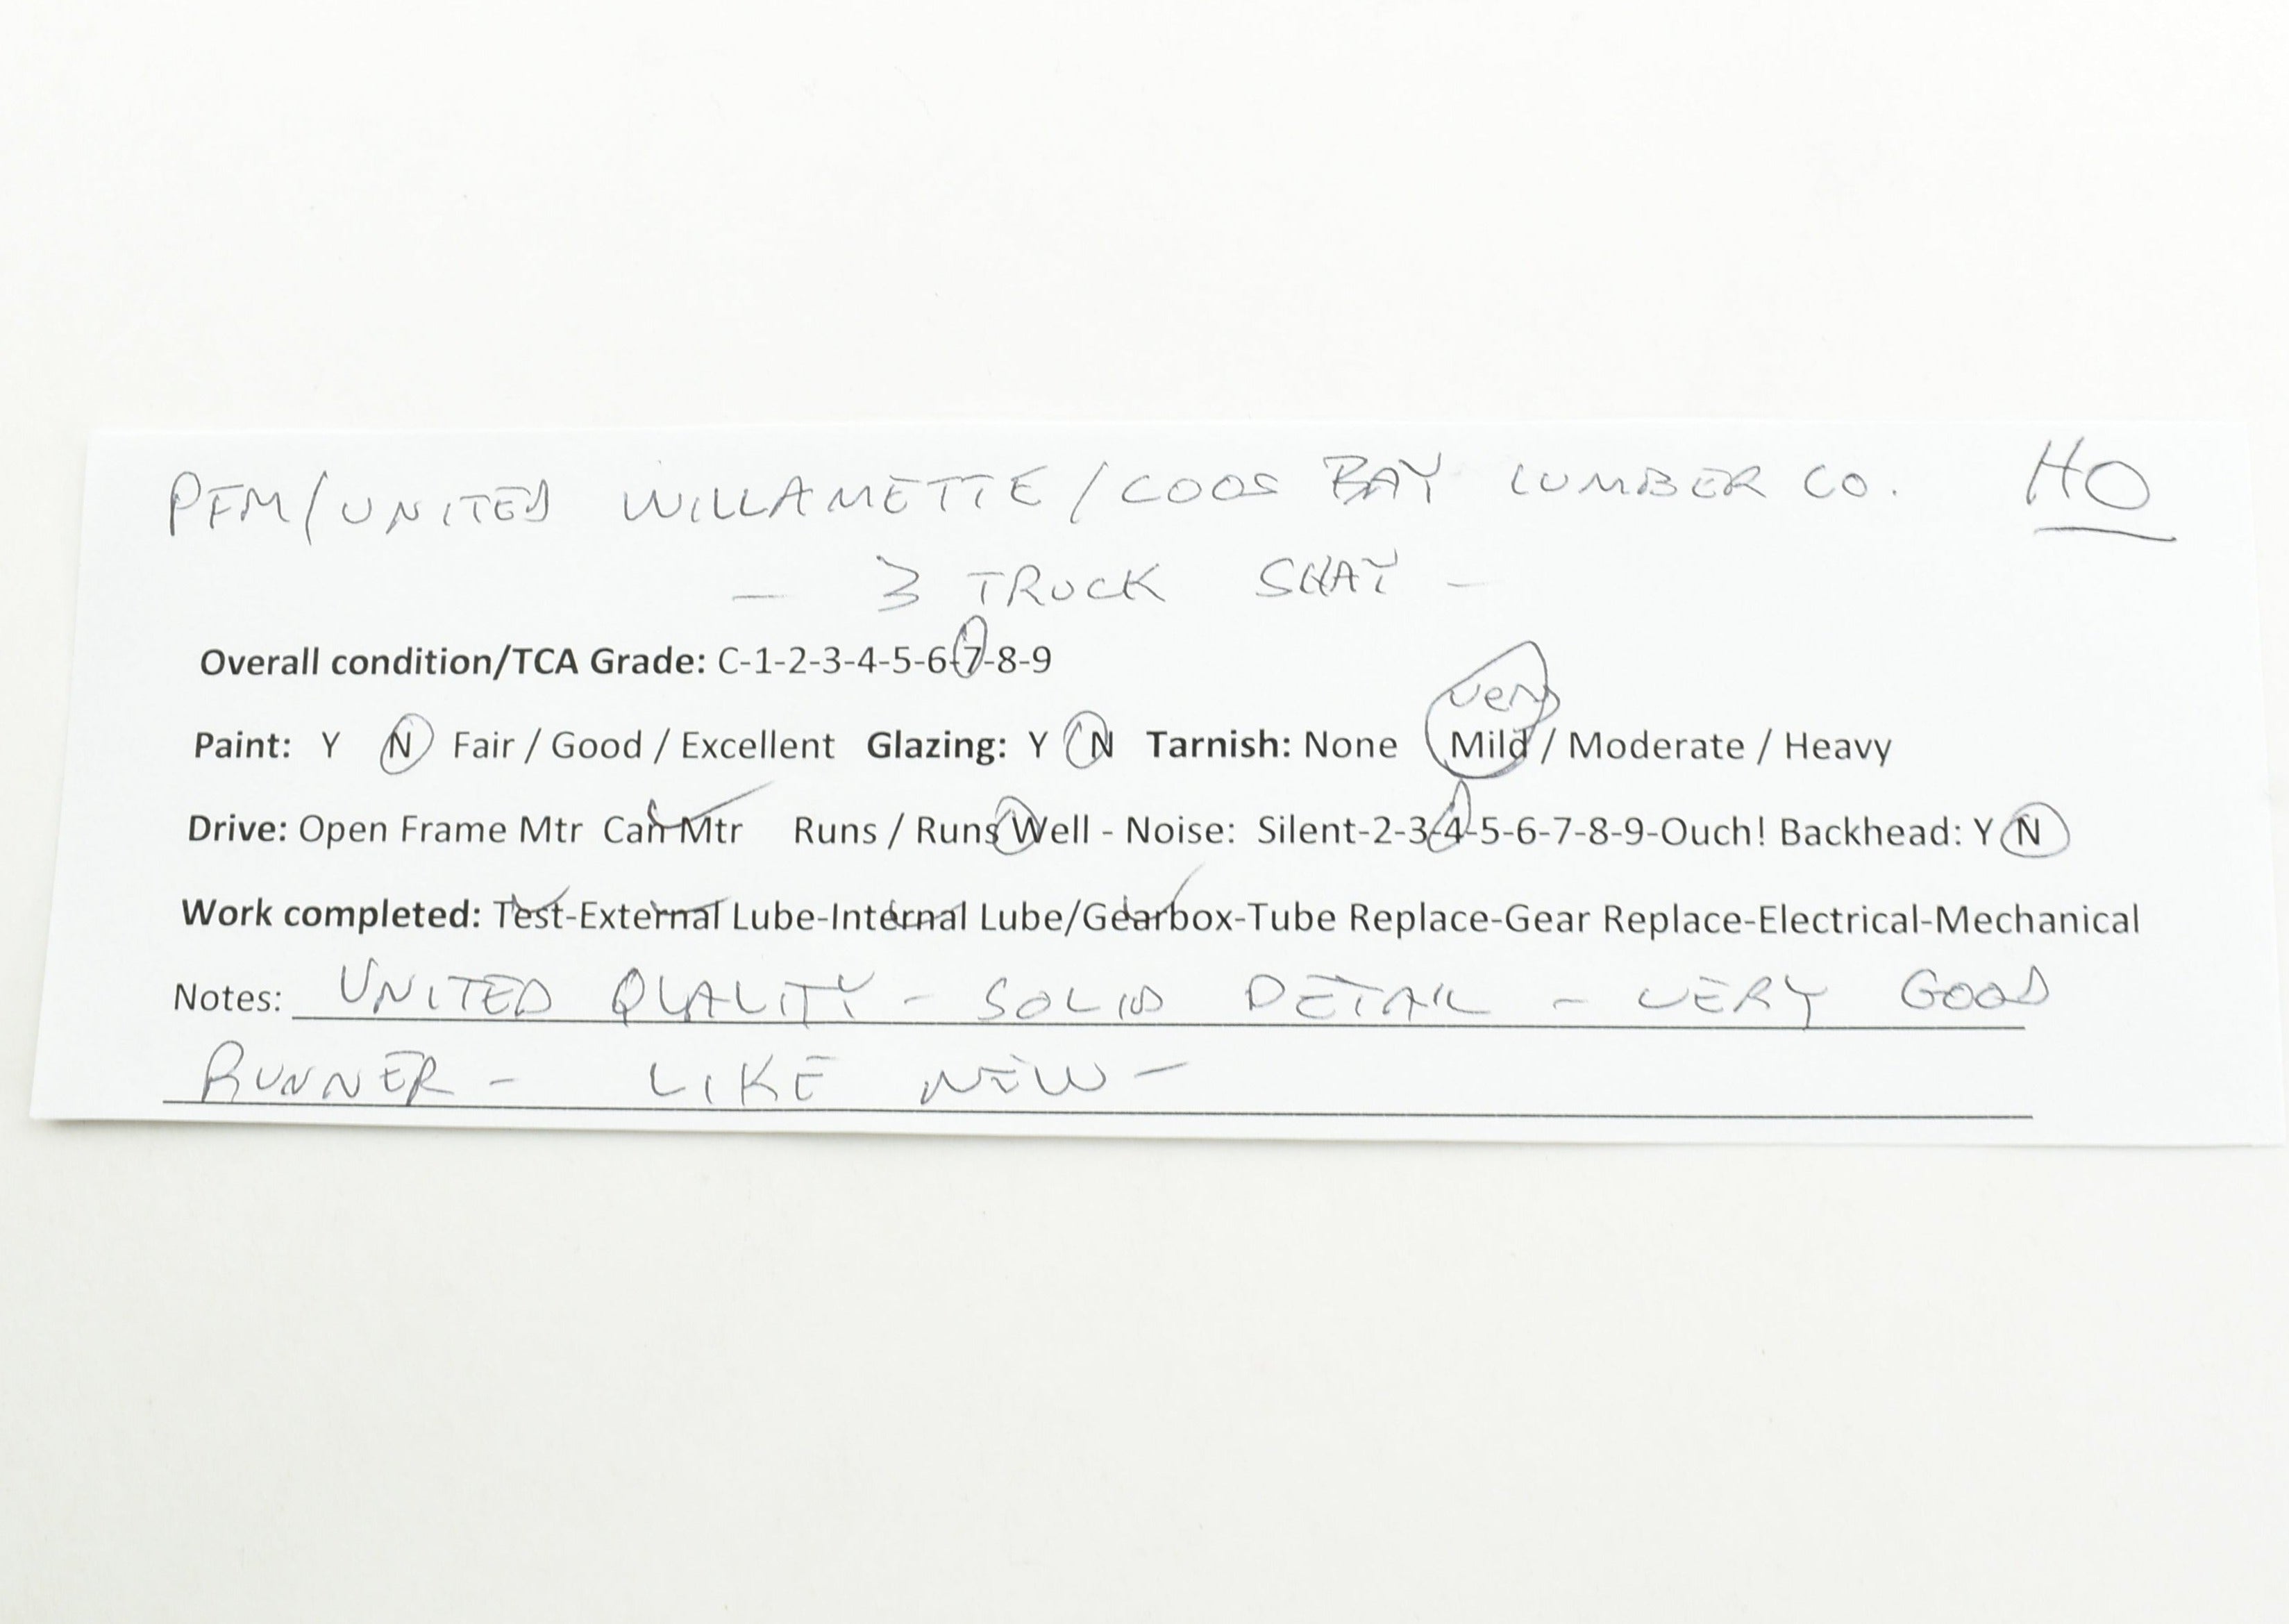 PFM/UNITED WILLAMETTE/COOS BAY LUMBER CO. HO
- 3 TRUCK SHAY -
Overall condition/TCA Grade: C-1-2-3-4-5-6-7-8-9
very
Paint: Y N Fair / Good / Excellent Glazing: Y N Tarnish: None Mild / Moderate / Heavy
Drive: Open Frame Mtr Can Mtr Runs / Runs Well - Noise: Silent-2-3-4-5-6-7-8-9-Ouch! Backhead: Y N
Work completed: Test-External Lube-Internal Lube/Gearbox-Tube Replace-Gear Replace-Electrical-Mechanical
Notes: UNITED QUALITY - SOLID DETAIL - VERY GOOD
RUNNER - LIKE NEW -